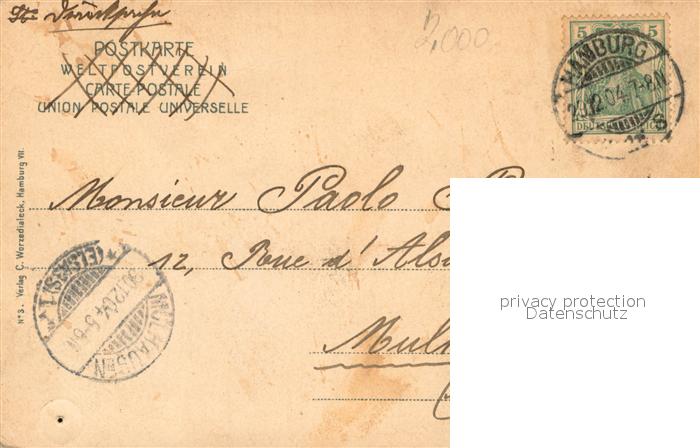 2,000
POSTKARTE
WELTPOSTVEREIN
CARTE POSTALE
UNION POSTALE UNIVERSELLE
5 5
HAMBURG
29.12.04. 7-8.N
Monsieur Paolo
12, Rue d'Als
Mul
No 3. Verlag C. Worzedialeck, Hamburg VII.
MÜLHAUSEN
(ELSASS) 1
30.12.04. 5-6.N
privacy protection
Datenschutz